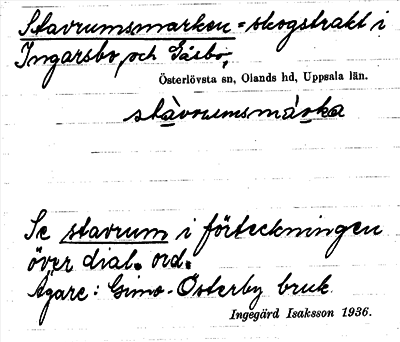 Stavrumsmarken - skogstrakt i
Ingarsbo, och Gåsbo,
Österlövsta sn, Olands hd, Uppsala län.
stàvrumsmárka
Se stavrum i förteckningen
över dial. ord.
Ägare: Gimo-Österby bruk.
Ingegärd Isaksson 1936.